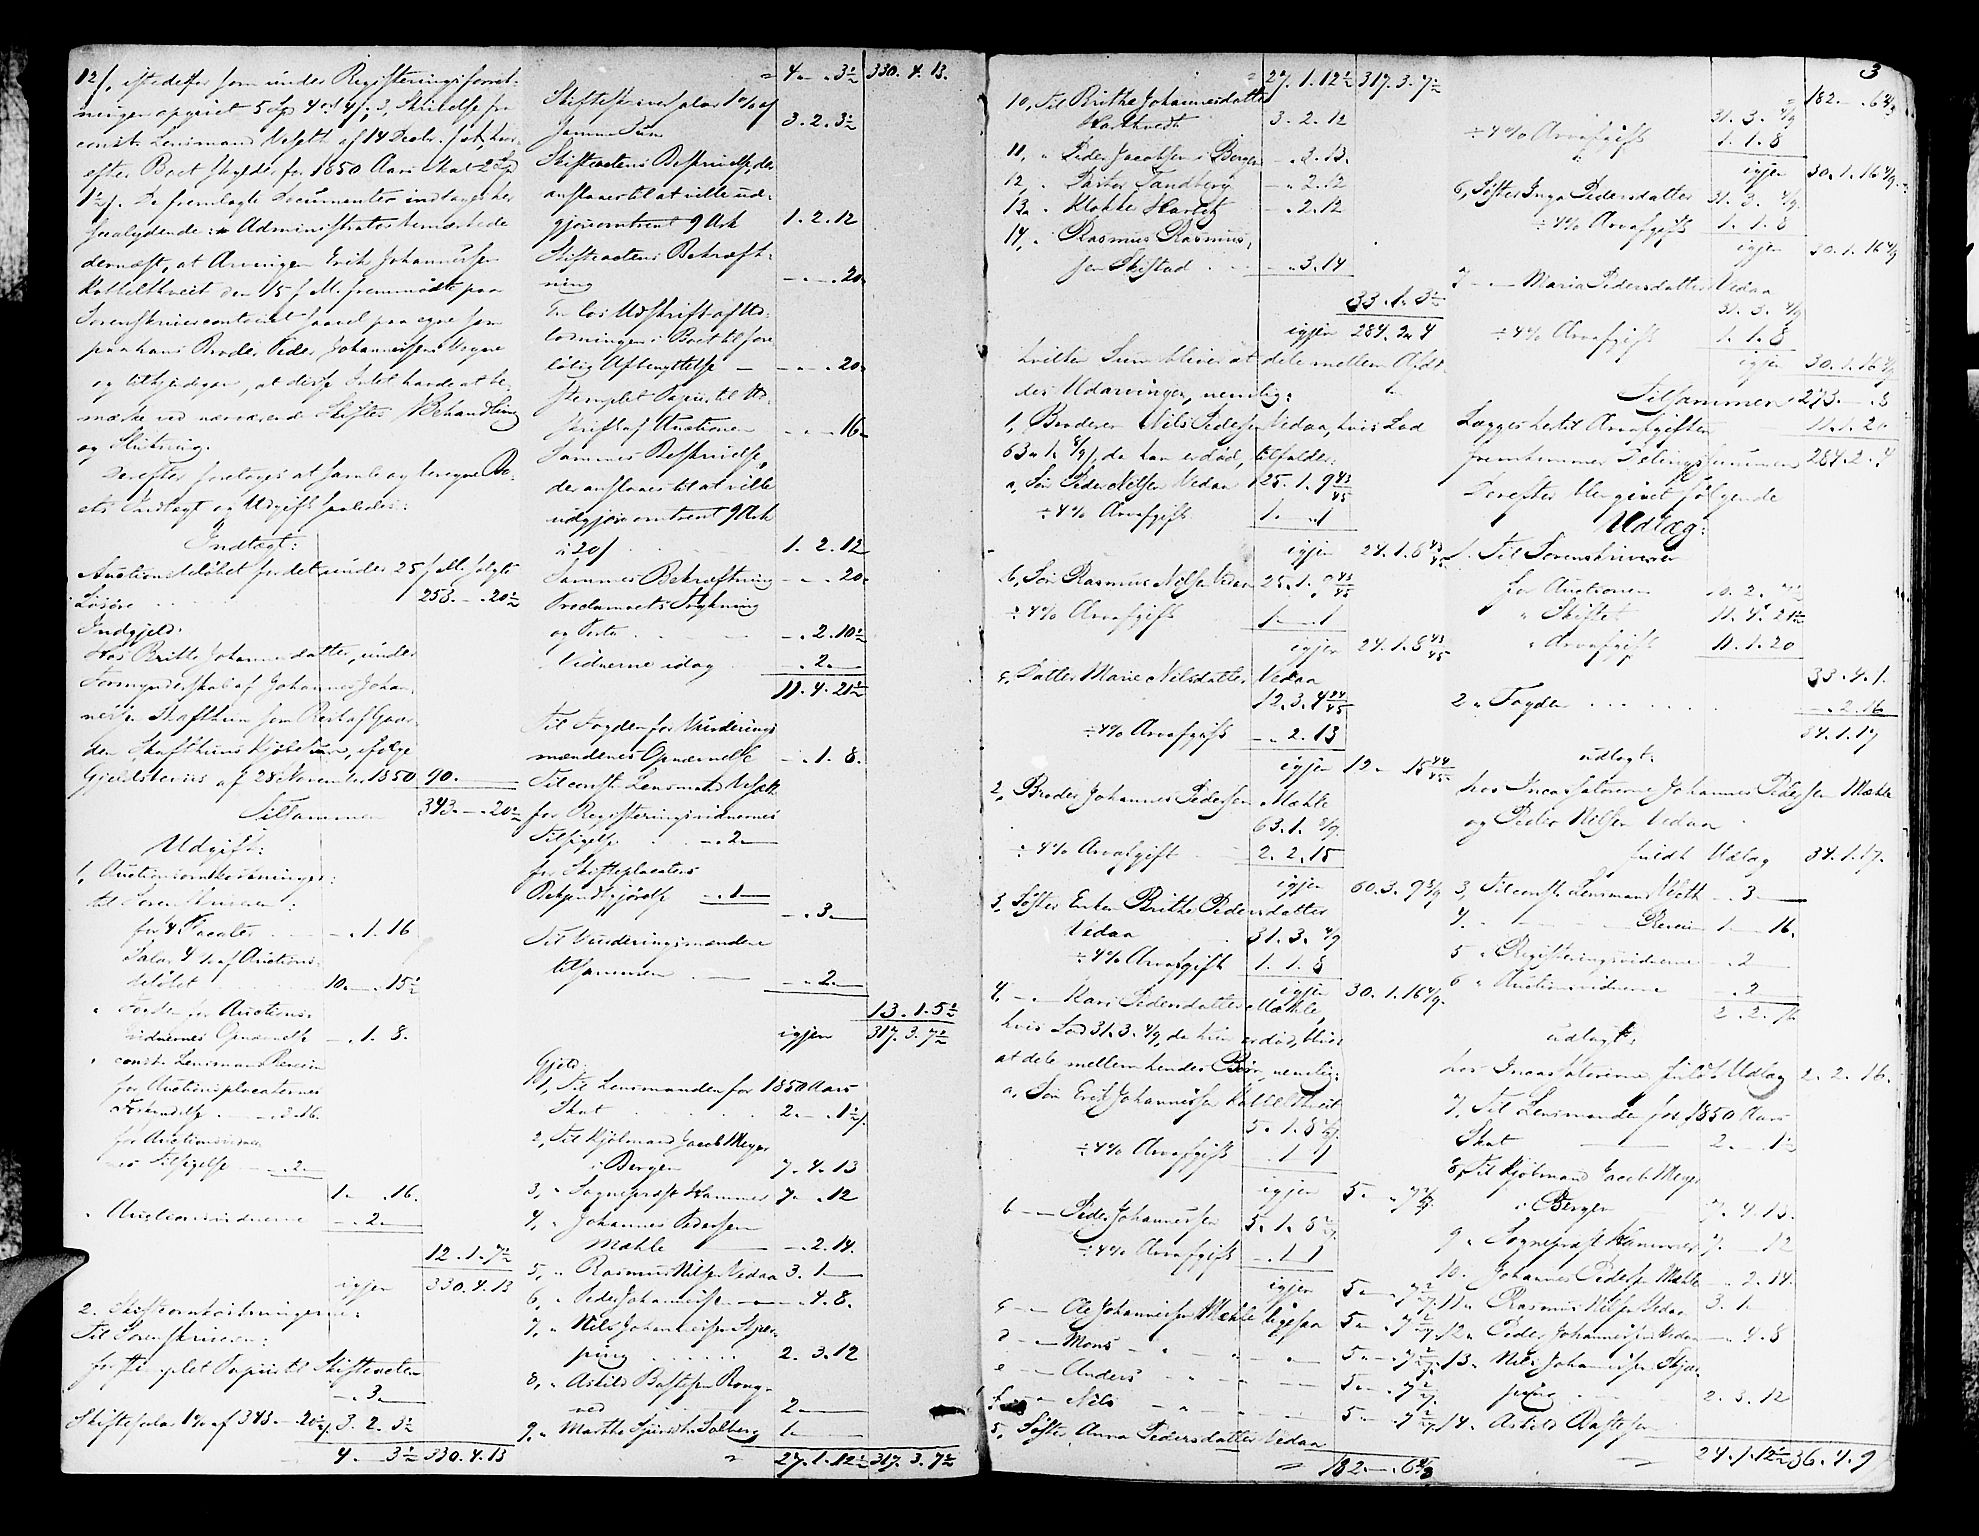 12/, istedetfor som under Registeringsforret-
ningen opgivet 5 Spd 4
const. Lensmand af 14 Decbr. f. A., hvor-
efter Boet skylder for 1850 Aars Skat 2 Spd
1½/. De fremlagte Documenter indtages her
saalydende: Administrator bemærkede
dernæst, at Arvingen Erik Johannessen
Kattelthveit den 15 f. M. fremmødte paa
Sorenskrivercontoiret saavel paa egne som
paa hans Broder Peder Johannessens Vegne
og tilkjendegav, at disse Intet havde at be-
mærke ved nærværende Skiftes Behandling
og Slutning.
Derefter foretoges at samle og beregne Bo-
ets Indtægt og Udgift saaledes:
Indtægt:
Auctionsbeløbet for det under 25 f. M. solgte
Løsøre 253. – . 20½
Indgjeld:
Hos Britte Johannesdatter, under
Formynderskab af Johannes Johan-
nessen Skafthun som Rest af Gaar-
den Skafthuns Kjøbesum, ifølge
Gjeldsbeviis af 28 November 1850 90. –
Tilsammen 343. – . 20½
Udgift:
1, Auctionsomkostninger:
til Sorenskriveren:
for 4 Placater – . 1. 16
Salar 4 % af Auctions-
beløbet 10. – . 15½
" Foged for Auctions-
vidnernes Opnævnelse – . 1. 8.
" const. Lensmand
for Auctionsplacaternes
Forkyndelse – . 3. 16.
for Auctionsvidner-
nes Tilsigelse – . 2. –
1. – . 16.
" Auctionsvidnerne – . 2. –
12. 1. 7½
igjen 330. 4. 13
2. Skifteomkostningerne:
Til Sorenskriveren:
for stemplet Papir til Skifteacten
– . 3. –
Skiftesalar 1% af 343. – . 20½ 3. 2. 3½
4. – . 3½ 330. 4. 13
4. – . 3½ 330. 4. 13.
Skifteskriversalar 1% af
samme Sum 3. 2. 3½
Skifteactens Beskrivelse, der
ansloges til at ville ud-
gjøre omtrent 9 Ark 1. 2. 12
Skifteactens Bekræft-
ning – . – . 20.
En løs Udskrift af Ud-
lodningen i Boet til fore-
løbig Afbenyttelse – – . – . 20.
Stemplet Papir til Ud-
skrift af Auctionen – . – . 16.
Sammes Beskrivelse,
der ansloges til at ville
udgjøre omtrent 9 Ark
à 20/ 1. 2. 12
Sammes Bekræftning – . – . 20.
Proclamaets Trykning
og Porto – . 2. 10½
Vidnerne idag – . 2. –
11. 4. 21½
Til Fogden for Vurderings-
mændenes Opnævnelse – . 1. 8.
Til const. Lensmand
for Registeringsvidnernes
Tilsigelse – . 2. –
for Skifteplacatens
Bekjendtgjørelse – . 1 –
– . 3. –
Til Vurderingsmændene
tilsammen – . 2. –
13. 1. 5½
igjen 317. 3. 7½
Gjeld:
1, Til Lensmanden for 1850 Aars
Skat 2. – . 1½
2, Til Kjøbmand Jacob Meyer
i Bergen 7. 4. 13
3, " Sognepræst Hammer 7. – . 12
4, " Johannes Pedersen
Mæhle – . 2. 14.
5, " Rasmus Nilsen Vedaa 3. 1. –
6, " Peder Johannessen – . 4. 8.
7, " Nils Johannessen Skjer-
ping 2. 3. 12
8, " Askild Baptesen Rong-
ved 2. –
9, " Marthe Solberg 1. –
27. 1. 12½ 317. 3. 7½
27. 1. 12½ 317. 3. 7½
10, Til Brithe Johannesdatter
3. 2. 12
11, " Peder Jacobsen i Bergen – . 2. 13.
12, " Pastor Sandberg – . 2. 12
13, " Klokker – . 2. 12
14, " Rasmus Rasmus-
sen – . 3. 14
33. 1. 3½
igjen 284. 2. 4
hvilken Sum bliver at dele mellem Afdø-
des Udarvinger, nemlig:
1, Broderen Nils Pedersen Vedaa, hvis Lod
63. 1. 8/9/, da han er død, tilfalder:
a, Søn Peder Nilsen Vedaa 25. 1. 9 43/45
÷ 4% Arvafgift 1. – . 1
igjen 24. 1. 8 43/45
b, Søn Rasmus Nilsen Vedaa 25. 1. 9 43/45
÷ 4% Arvafgift 1. – . 1
igjen 24. 1. 8 43/45
c, Datter Marie Nilsdatter Vedaa
12. 3. 4 44/45
÷ 4% Arvafgift – . 2. 13
igjen 12. – . 15 44/45
2, Broder Johannes Pedersen Mæhle
63. 1. 8/9.
÷ 4% Arvafgift 2. 2. 15
igjen 60. 3. 9 8/9
3, Søster Enken Brithe Pedersdatter
Vedaa 31. 3. 4/9
÷ 4% Arvafgift 1. 1. 8
igjen 30. 1. 16 4/9.
4, – " – Kari Pedersdatter Mæhle,
hvis Lod 31. 3. 4/9, da hun er død, bliver
at dele mellem hendes Børn, nemlig:
a, Søn Erik Johannessen Kattelthveit
5. 1. 8 2/27.
÷ 4% Arvafgift – . 1 1
igjen 5. – . 7 2/27.
b – " – Peder Johannessen 5. 1. 8 2/27.
÷ 4% Arvafgift – . 1 1
igjen 5. – . 7 2/27.
c – " – Ole Johannessen Mæhle ligesaa 5. – . 7 2/27.
d – " – Mons – " – " – " – 5. – . 7 2/27.
e – " – Anders – " – " – " – 5. – . 7 2/27.
f – " – Nils – " – " – " – 5. – . 7 2/27.
5, Søster Anna Pedersdatter Vedaa
182. – . 6 4/9
3
182. – . 6 4/9
31. 3. 4/9
÷ 4% Arvafgift 1. 1. 8
igjen 30. 1. 16 4/9.
6, Søster Inga Pedersdatter 31. 3. 4/9.
÷ 4% Arvafgift 1. 1. 8
igjen 30. 1. 16 4/9
7 – " – Maria Pedersdatter Vedaa
31. 3. 4/9
÷ 4% Arvafgift 1. 1. 8
igjen 30. 1. 16 4/9
Tilsammen 273. – . 8
Lægges hertil Arvafgiften 11. 1. 20
fremkommer Delingssummen 284. 2. 4
Derefter blev givet følgende
Udlæg:
1. Til Sorenskriveren
for Auctionen
" Skiftet 11. 4. 21½
" Arvafgift 11. 1. 20
33. 4. 1.
2 " Fogden – . 2. 16
34. 1. 17
udlagt:
hos Incassatorerne Johannes Pedersen Mæhle
og Peder Nilsen Vedaa
fuldt Udlæg 34. 1. 17.
3, Til const. Lensmand – . 3. –
4. 1. – . 16.
5 " Registeringsvidnerne – . 2 –
6 " Auctionsvidnerne – . 2 –
2. 2. 16
udlagt:
hos Incassatorerne fuldt Udlæg 2. 2. 16.
7, Til Lensmanden for 1850 Aars
Skat 2. – . 1½
8, Til Kjøbmand Jacob Meyer
i Bergen 7. 4. 13.
9 " Sognepræst Hammer 7. – . 12
10. " Johannes Pedersen Mæhle – . 2. 14.
11 " Rasmus Nilsen Vedaa 3. 1. –
12 " Peder Johannessen Vedaa – . 4. 8
13 " Nils Johannessen Skjær-
ping 2. 3. 12
14. " Askild Baptesen
24. 1. 12½ 36. 4. 9